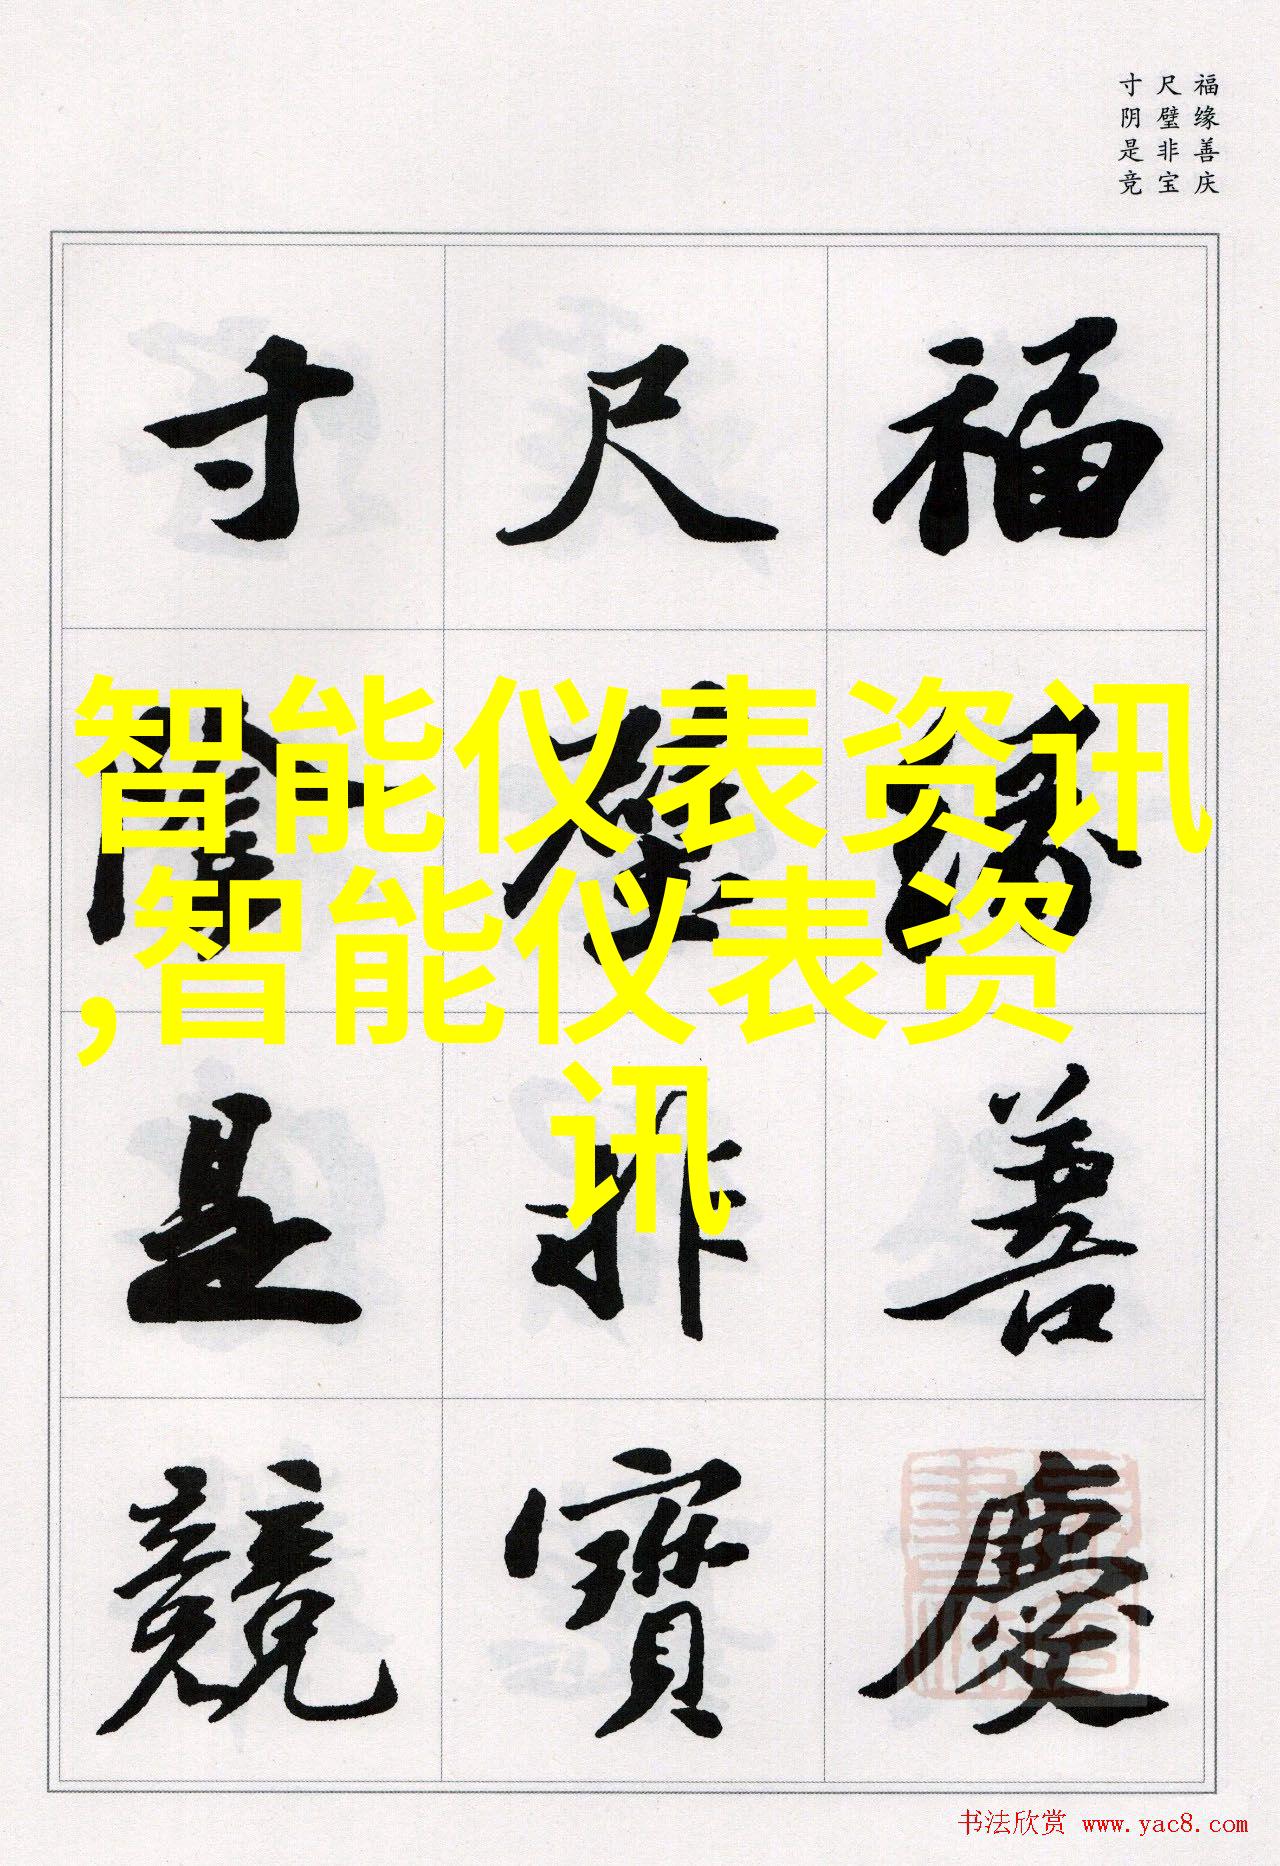 福缘善庆
尺璧非宝
寸阴是竞
福緣善慶
尺璧非寶
寸陰是競
智能仪表资讯
,智能仪表资
讯
书法欣赏 www.yac8.com